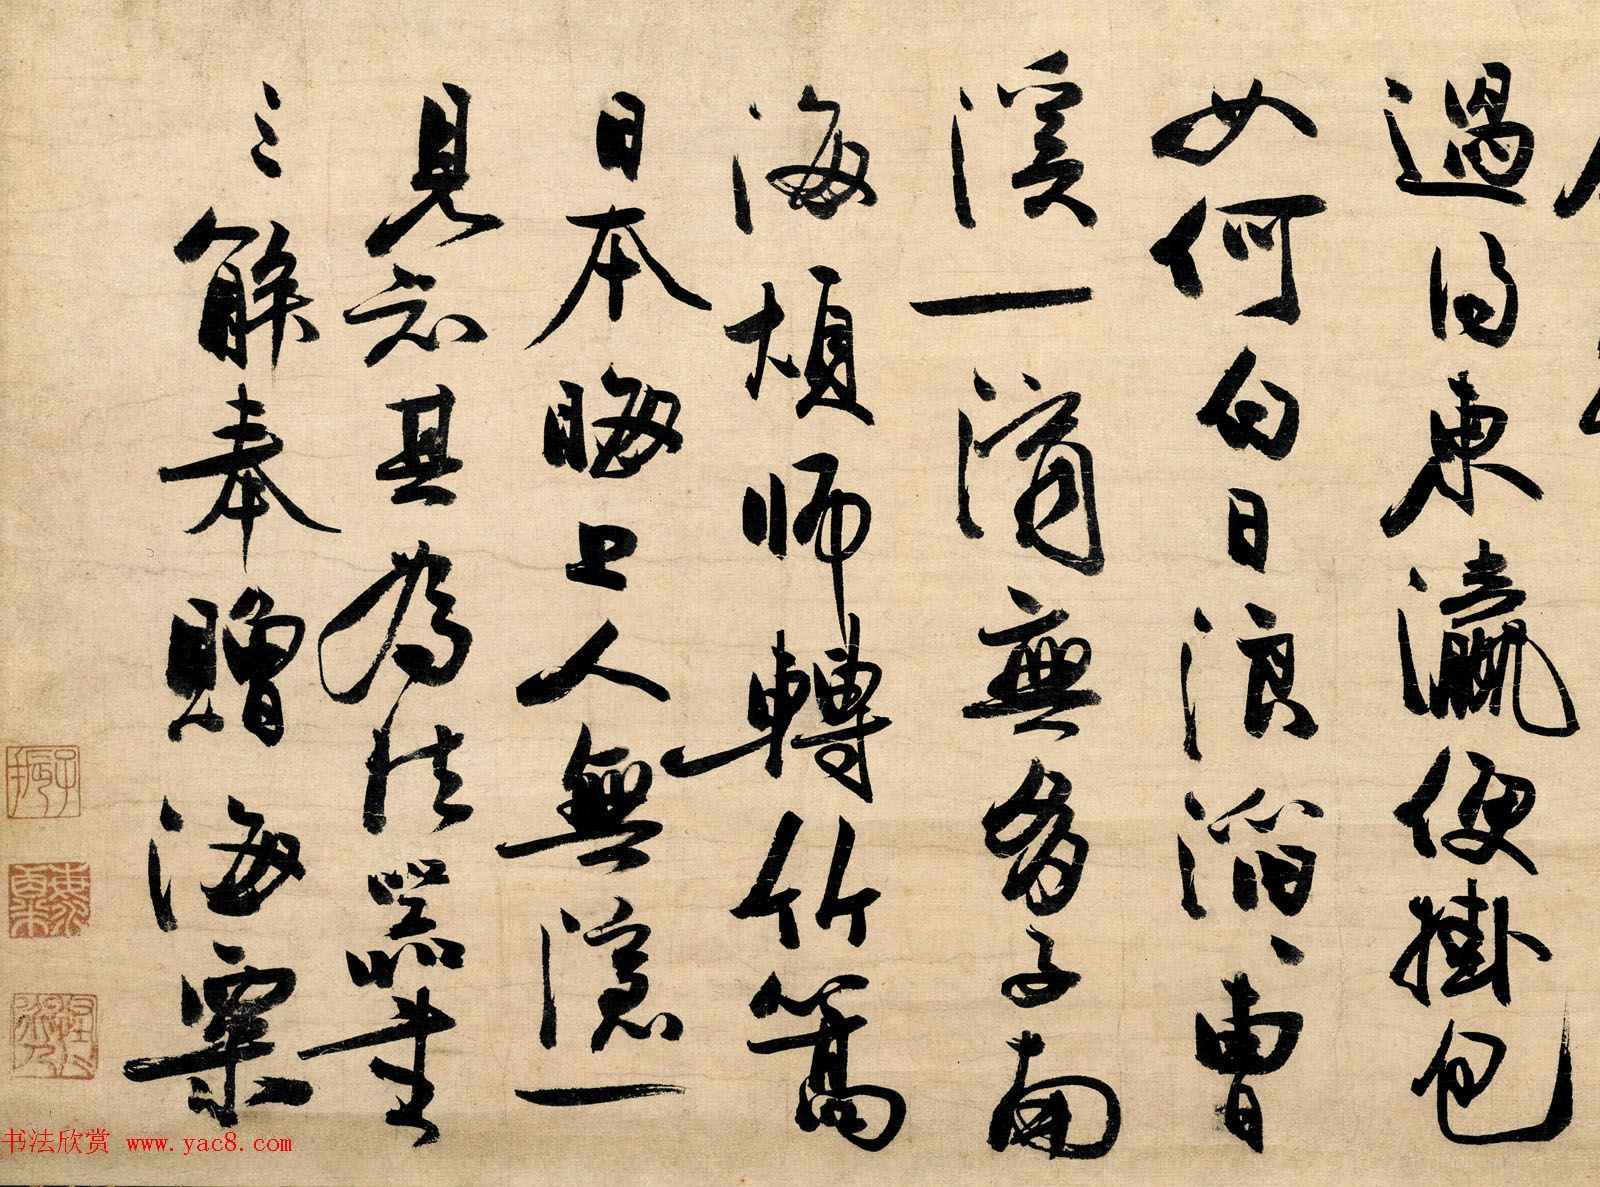 過得東瀛便掛包
如何白日浪滔、曹
溪一滴無多子南
海煩師轉竹篙
日本晦上人無隱一
見知其為法器書
之解奉贈海粟
子振
書法欣賞 www.yac8.com